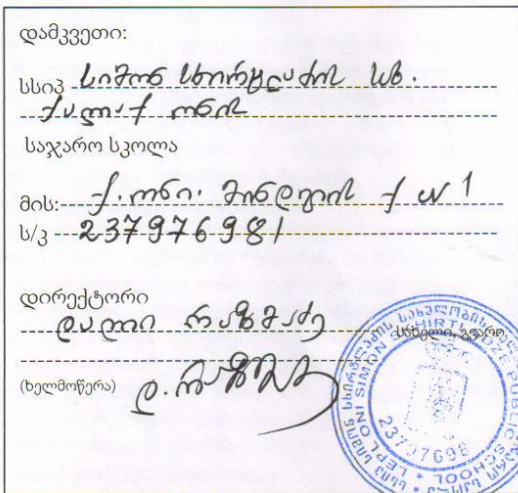 დამკვეთი:
სსიპ სიმონ სხირტლაძის სახ.
ქალაქ ონის
საჯარო სკოლა
მის: ქ. ონი. მინდელის ქ N 1
ს/კ 237976981
დირექტორი
დალი რაზმაძე
სახელი, გვარი
(ხელმოწერა) დ. რაზმაძე
LEPL ONI SIMON SKHIRTLADZE PUBLIC SCHOOL